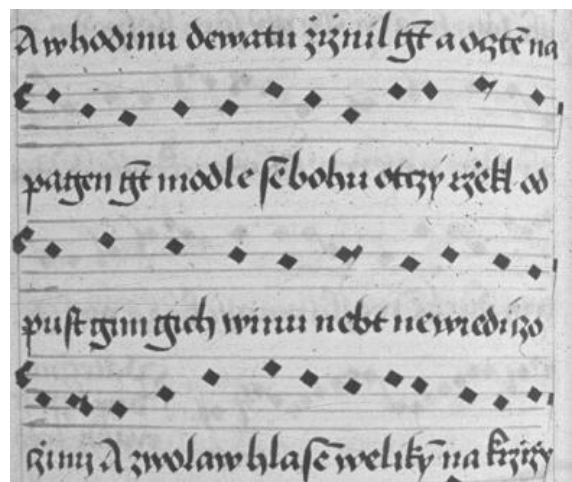 A w hodinu dewatu žiznil gͭ a ocztē na
pagen gͭ modle sē bohu otczy rzekl od
pust gim gich winu nebt newiedi czo
cziniz A zwolaw hlasē welikȳ na krzizy